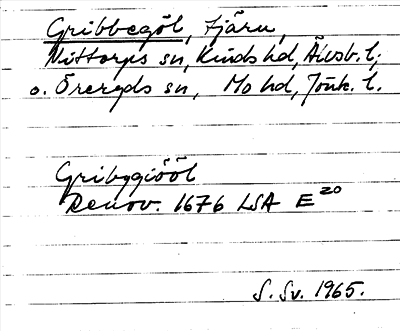 Gribbegöl, tjärn,
Nittorps sn, Kinds hd, Älvsb. l;
o. Öreryds sn, Mo hd, Jönk. l.
Gribygiööl
Renov. 1676 LSA E 20
S. Sv. 1965.